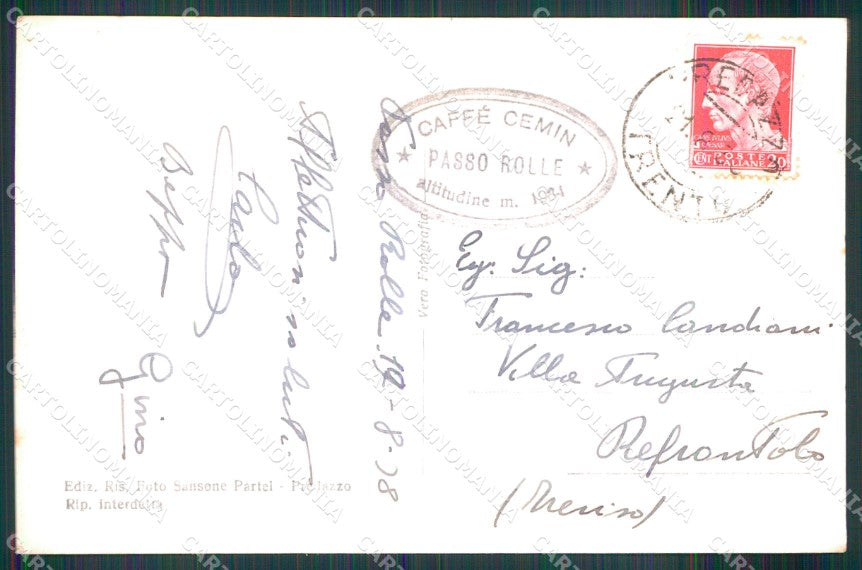 Passo Rolle 19-8-38
Affettuosi saluti
Carlo
Beppe
Gino
CAFFÉ CEMIN
★ PASSO ROLLE ★
altitudine m. 1984
Vera Fotografia
POSTE
ITALIANE
CENT 20
TRENTO
Eg. Sig:
Francesco Candiani
Villa Augusta
Refrontolo
(Treviso)
Ediz. Ris. Foto Sansone Partel - Predazzo
Rip. interdetta
CARTOLINOMANIA